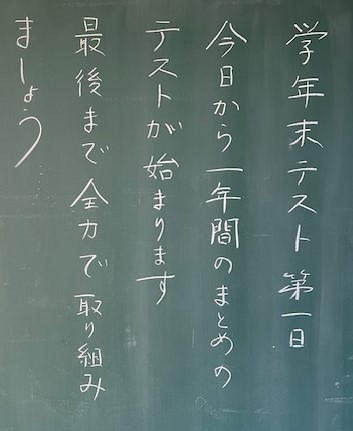 学年末テスト第一日
今日から一年間のまとめの
テストが始まります
最後まで全力で取り組み
ましょう